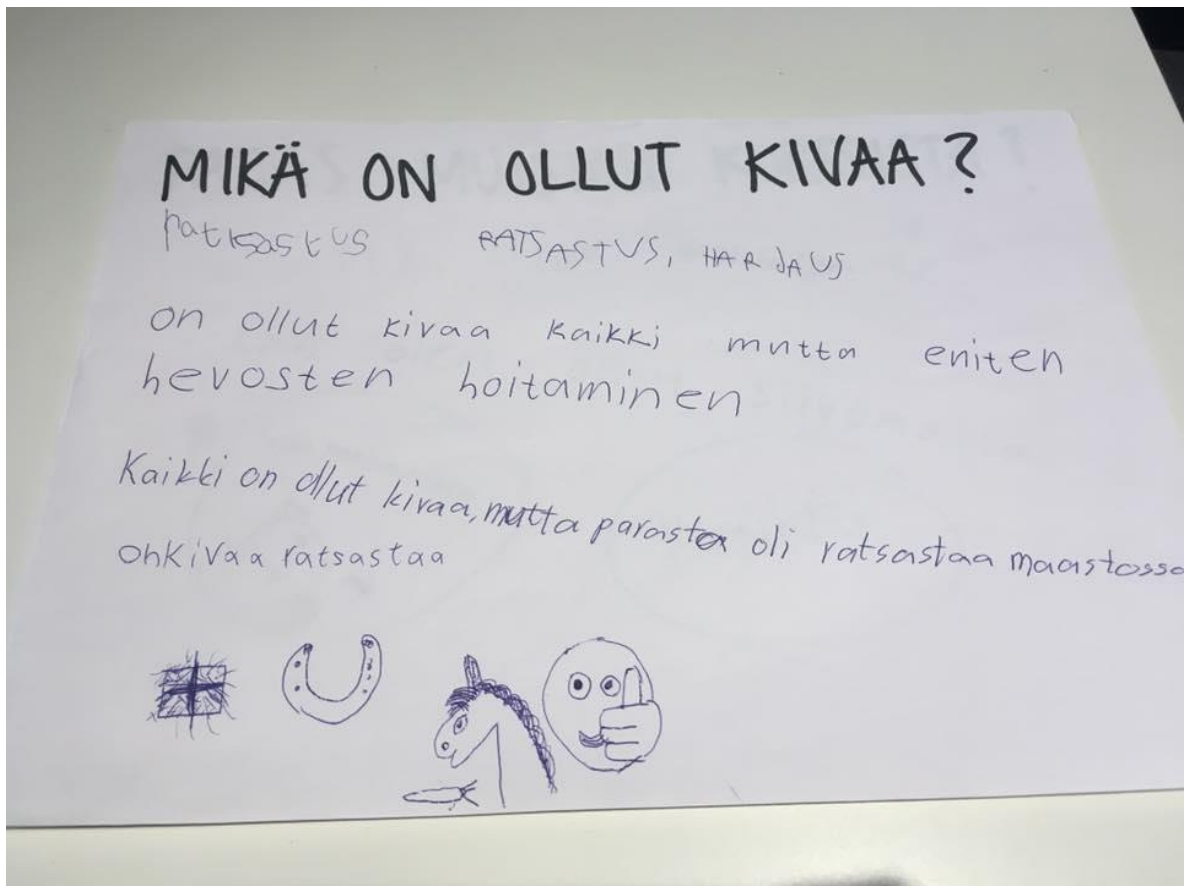 MIKÄ ON OLLUT KIVAA?
ratsastus RATSASTUS, HARJAUS
on ollut kivaa kaikki mutta eniten
hevosten hoitaminen
Kaikki on ollut kivaa, mutta parasta oli ratsastaa maastossa
on kivaa ratsastaa